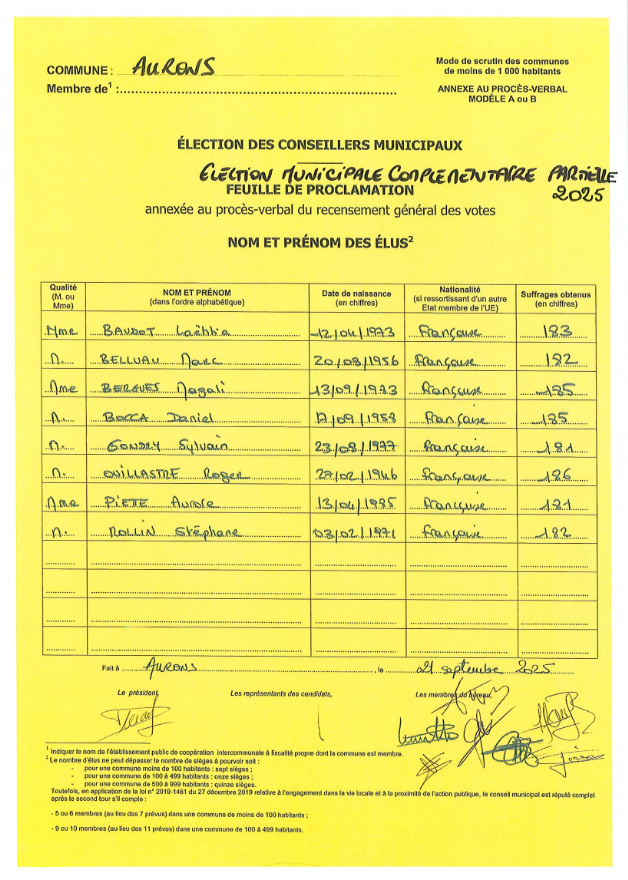 COMMUNE : AURONS
Mode de scrutin des communes
de moins de 1 000 habitants
Membre de¹ :
ANNEXE AU PROCÈS-VERBAL
MODÈLE A ou B
ÉLECTION DES CONSEILLERS MUNICIPAUX
ELECTION MUNICIPALE COMPLEMENTAIRE PARTIELLE
2025
FEUILLE DE PROCLAMATION
annexée au procès-verbal du recensement général des votes
NOM ET PRÉNOM DES ÉLUS²
Qualité (M. ou Mme) NOM ET PRÉNOM (dans l'ordre alphabétique) Date de naissance (en chiffres) Nationalité (si ressortissant d'un autre Etat membre de l'UE) Suffrages obtenus (en chiffres)
Mme BAUDOT Laëtitia 12/04/1973 Française 183
M. BELLUAU Marc 20/08/1956 Française 182
Mme BERGUES Magali 13/09/1973 Française 185
M. BOCCA Daniel 17/09/1958 Française 185
M. GONDRY Sylvain 23/08/1977 Française 181
M. OUILLASTRE Roger 27/02/1946 Française 186
Mme PIETTE Aurore 13/04/1975 Française 181
M. ROLLIN Stéphane 03/02/1971 Française 182
Fait à AURONS, le 21 septembre 2025
Le président, Les représentants des candidats, Les membres du bureau,
¹ Indiquer le nom de l'établissement public de coopération intercommunale à fiscalité propre dont la commune est membre.
² Le nombre d'élus ne peut dépasser la nombre de sièges à pourvoir soit :
- pour une commune moins de 100 habitants : sept sièges ;
- pour une commune de 100 à 499 habitants : onze sièges ;
- pour une commune de 500 à 999 habitants : quinze sièges.
Toutefois, en application de la loi n° 2019-1461 du 27 décembre 2019 relative à l'engagement dans la vie locale et à la proximité de l'action publique, le conseil municipal est réputé complet
après le second tour s'il compte :
- 5 ou 6 membres (au lieu des 7 prévus) dans une commune de moins de 100 habitants ;
- 9 ou 10 membres (au lieu des 11 prévus) dans une commune de 100 à 499 habitants.